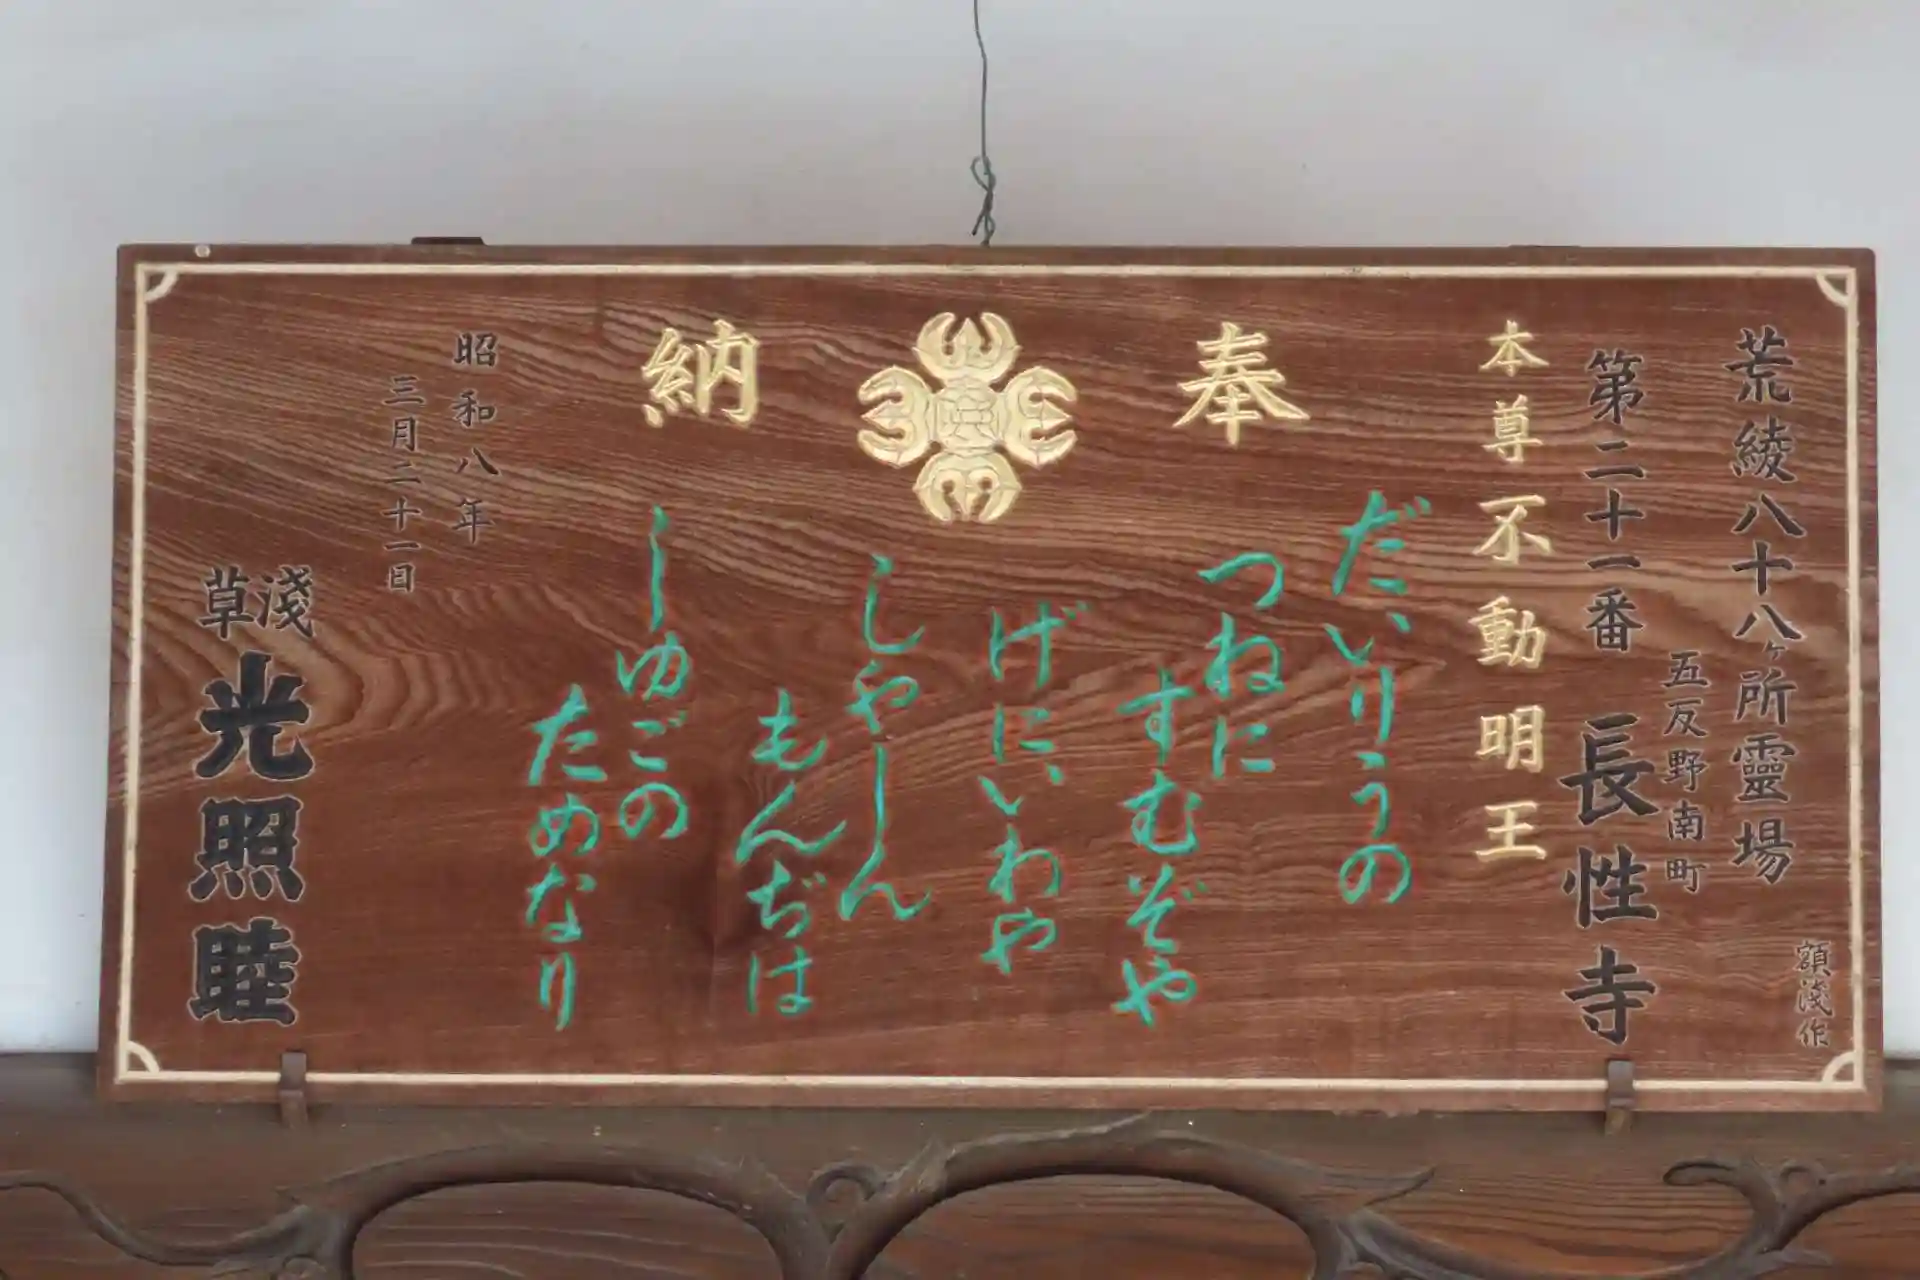 荒綾八十八ヶ所靈場
額淺作
五反野南町
第二十一番 長性寺
本尊不動明王
奉納
だいりうの
つねに
すむぞや
げにいわや
しやしん
もんぢは
しゆごの
ためなり
昭和八年
三月二十一日
淺草
光照睦